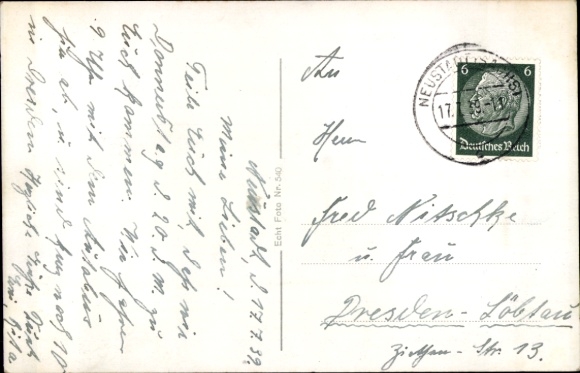 Neustadt, d. 17.7.39.
Meine Lieben!
Teile Euch mit, daß wir
Donnerstag d. 20. d. M. zu
Euch kommen. Wir fahren
9 Uhr mit dem Autobus
hier ab, u. sind kurz nach 10
in Dresden. Herzliche Grüße
Echt Foto Nr. 540
NEUSTADT (SACHS)
17.7.39
6 6
Deutsches Reich
An
Herrn
Fred Nitschke
u. Frau
Dresden-Löbtau
Str. 13.